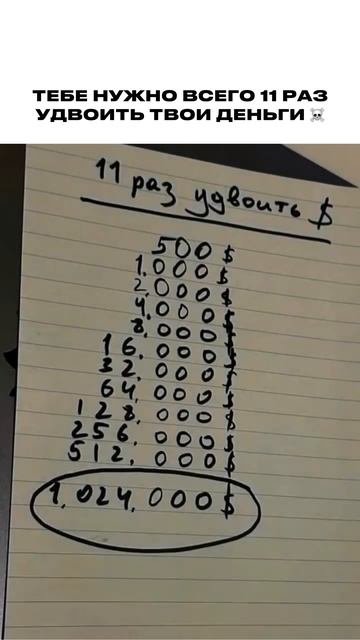 ТЕБЕ НУЖНО ВСЕГО 11 РАЗ
УДВОИТЬ ТВОИ ДЕНЬГИ ☠️
11 раз удвоить $
500 $
1.000 $
2.000 $
4.000 $
8.000 $
16.000 $
32.000 $
64.000 $
128.000 $
256.000 $
512.000 $
1.024.000 $